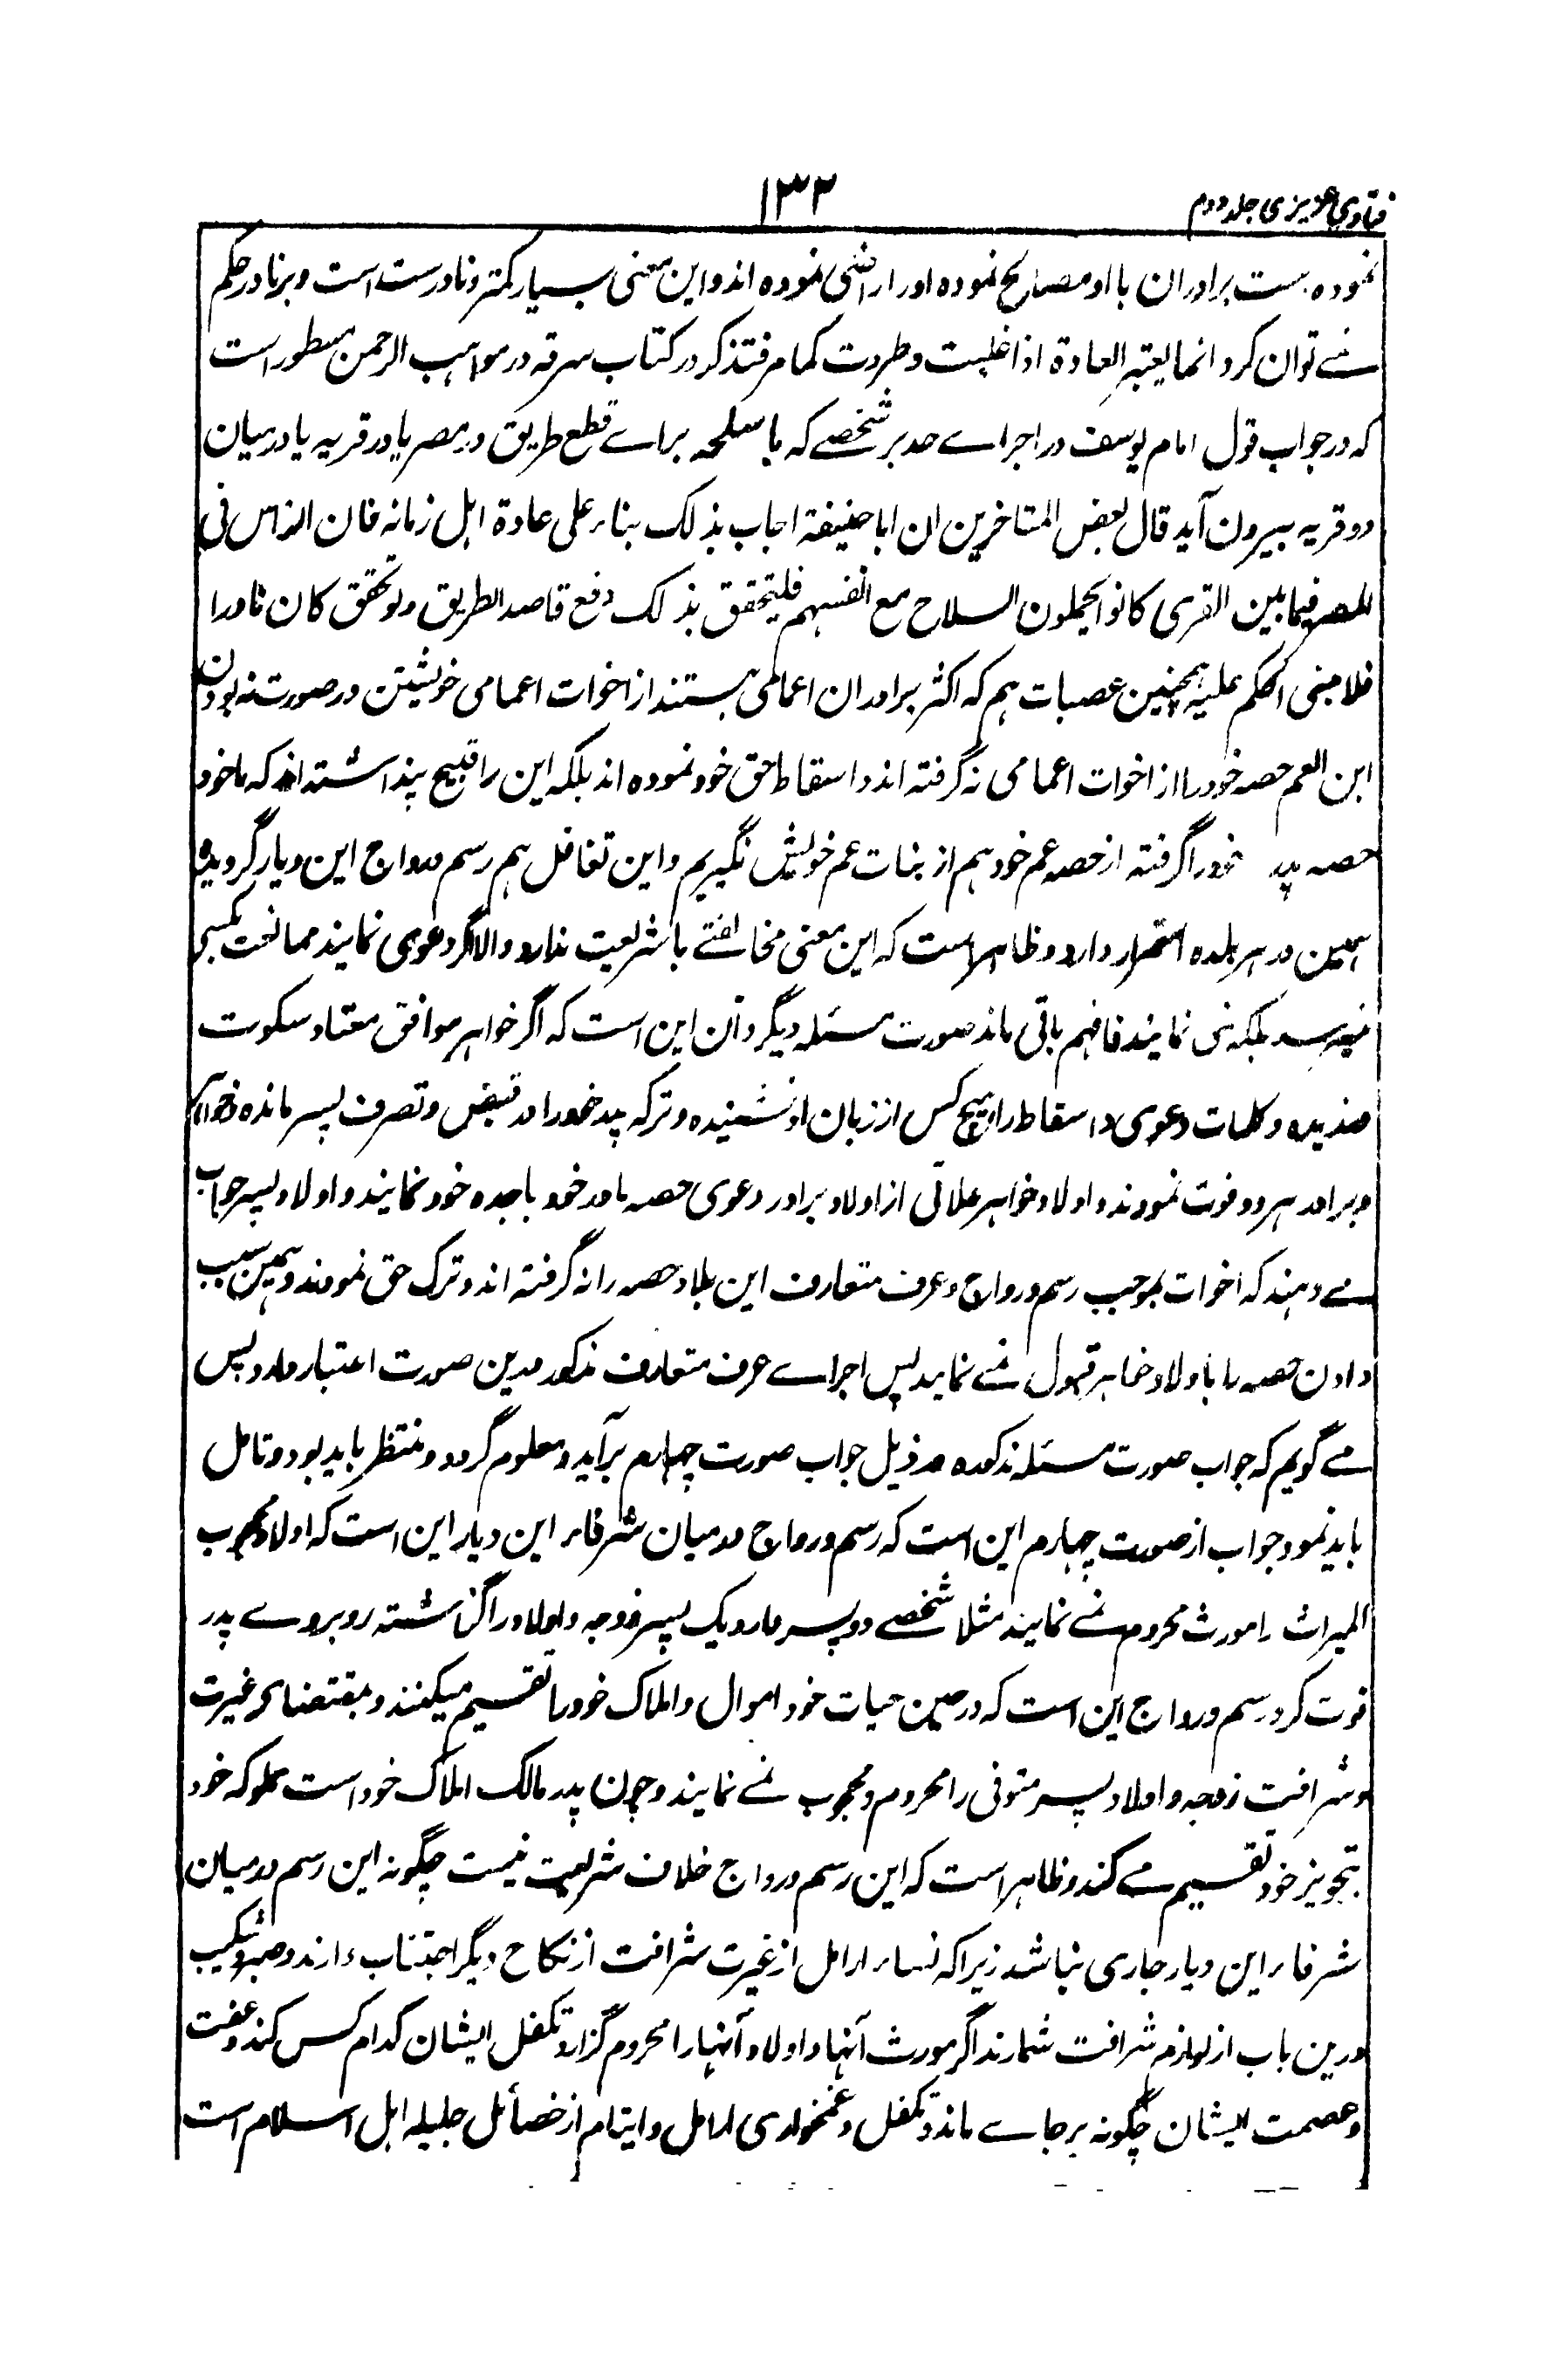 فتاوی عزیزی جلد دوم
۱۳۲
نموده است برادران با او مصالح نموده او را راضی نموده اند و این معنی بسیار کمتر و نادرست است و بر نادر حکم
نمے توان کرد انما یعتبر العادة اذا غلبت وطردت کما مر فتذکر در کتاب سرقه در مواهب الرحمن مسطور است
که در جواب قول امام یوسف در اجراے حد بر شخصے که با سلحه براے قطع طریق در مصر یا در قریه یا درمیان
دو قریه بیرون آید قال بعض المتاخرین ان ابا حنیفة اجاب بذلک بناء علی عادة اهل زمانه فان الناس فی
المصر فیما بین القری کانوا یحملون السلاح مع انفسهم فلیتحقق بذلک دفع قاصد الطریق ولو تحقق کان نادرا
فلا مبنی الحکم علیه همچنین عصبات هم که اکثر برادران اعمامی هستند از اخوات اعمامی خویشتن در صورت نه بودن
ابن العم حصه خود را از اخوات اعمامی نه گرفته اند و اسقاط حق خود نموده اند بلکه این را قبیح پنداشته اند که ما خود
حصه پدر خود را گرفته از حصه عم خود هم از بنات عم خویش نگیریم و این تغافل هم رسم و رواج این دیار گردیده
همین در هر بلده استمرار دارد و ظاهر است که این معنی مخالفتے با شریعت ندارد والا اگر دعوی نمایند ممانعت کسے
نمیرسد بلکه نمی نمایند فافهم باقی ماند صورت مسئله دیگر و آن این است که اگر خواهر موافق معتاد سکوت
ورزیده و کلمات دعوی و اسقاط را هیچ کس از زبان او نشنیده و ترکه پدر خود را در قبض و تصرف پسر مانده و خواهر
و برادر هر دو فوت نمودند و اولاد خواهر علاتی از اولاد برادر دعوی حصه مادر خود یا جده خود نمایند و اولاد پسر جواب
مے دهند که اخوات بموجب رسم و رواج و عرف متعارف این بلاد حصه را نه گرفته اند و ترک حق نمودند و بهمین سبب
دادن حصه را با اولاد خواهر قبول نمے نماید پس اجراے عرف متعارف مذکور درین صورت اعتبار دارد پس
مے گویم که جواب صورت مسئله مذکوره در ذیل جواب صورت چهارم برآید و معلوم گردد و منتظر باید بود و تامل
باید نمود جواب از صورت چهارم این است که رسم و رواج درمیان شرفاء این دیار این است که اولاد محجوب
المیراث را مورث محروم نمے نمایند مثلا شخصے دو پسر دارد یک پسر زوجه و اولاد را گذاشته روبروے پدر
فوت کرد رسم و رواج این است که در حین حیات خود اموال و املاک خود را تقسیم میکنند و بمقتضاے غیرت
و شرافت زوجه و اولاد پسر متوفی را محروم و محجوب نمے نمایند و چون پدر مالک املاک خود است مملوکه خود
بتجویز خود تقسیم مے کند و ظاهر است که این رسم و رواج خلاف شریعت نیست چگونه این رسم درمیان
شرفاء این دیار جاری نباشد زیرا که نساء ارامل از غیرت شرافت از نکاح دیگر اجتناب دارند و صبر و شکیب
درین باب از لوازم شرافت شمارند اگر مورث آنها و اولاد آنها را محروم گزارد تکفل ایشان کدام کس کند و عفت
و عصمت ایشان چگونه برجاے ماند و تکفل و غمخواری ارامل و ایتام از خصائل جلیله اهل اسلام است